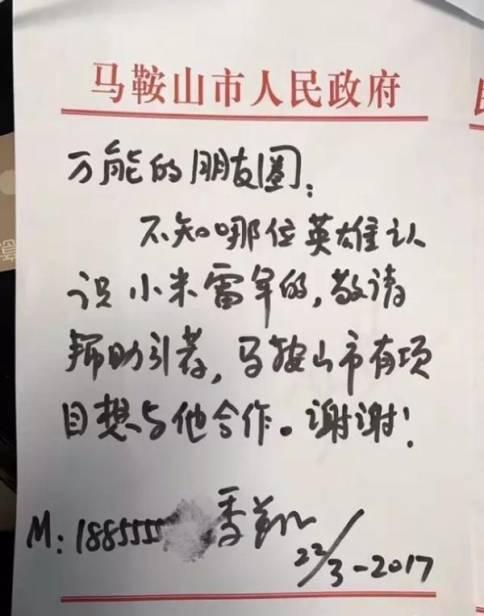 马鞍山市人民政府
万能的朋友圈：
不知哪位英雄认
识小米雷军的，敬请
帮助引荐，马鞍山市有项
目想与他合作。谢谢！
M：188555 季翔
22/3-2017